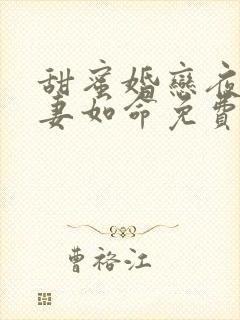 甜蜜婚戀夜
妻如命免費
曹裕江